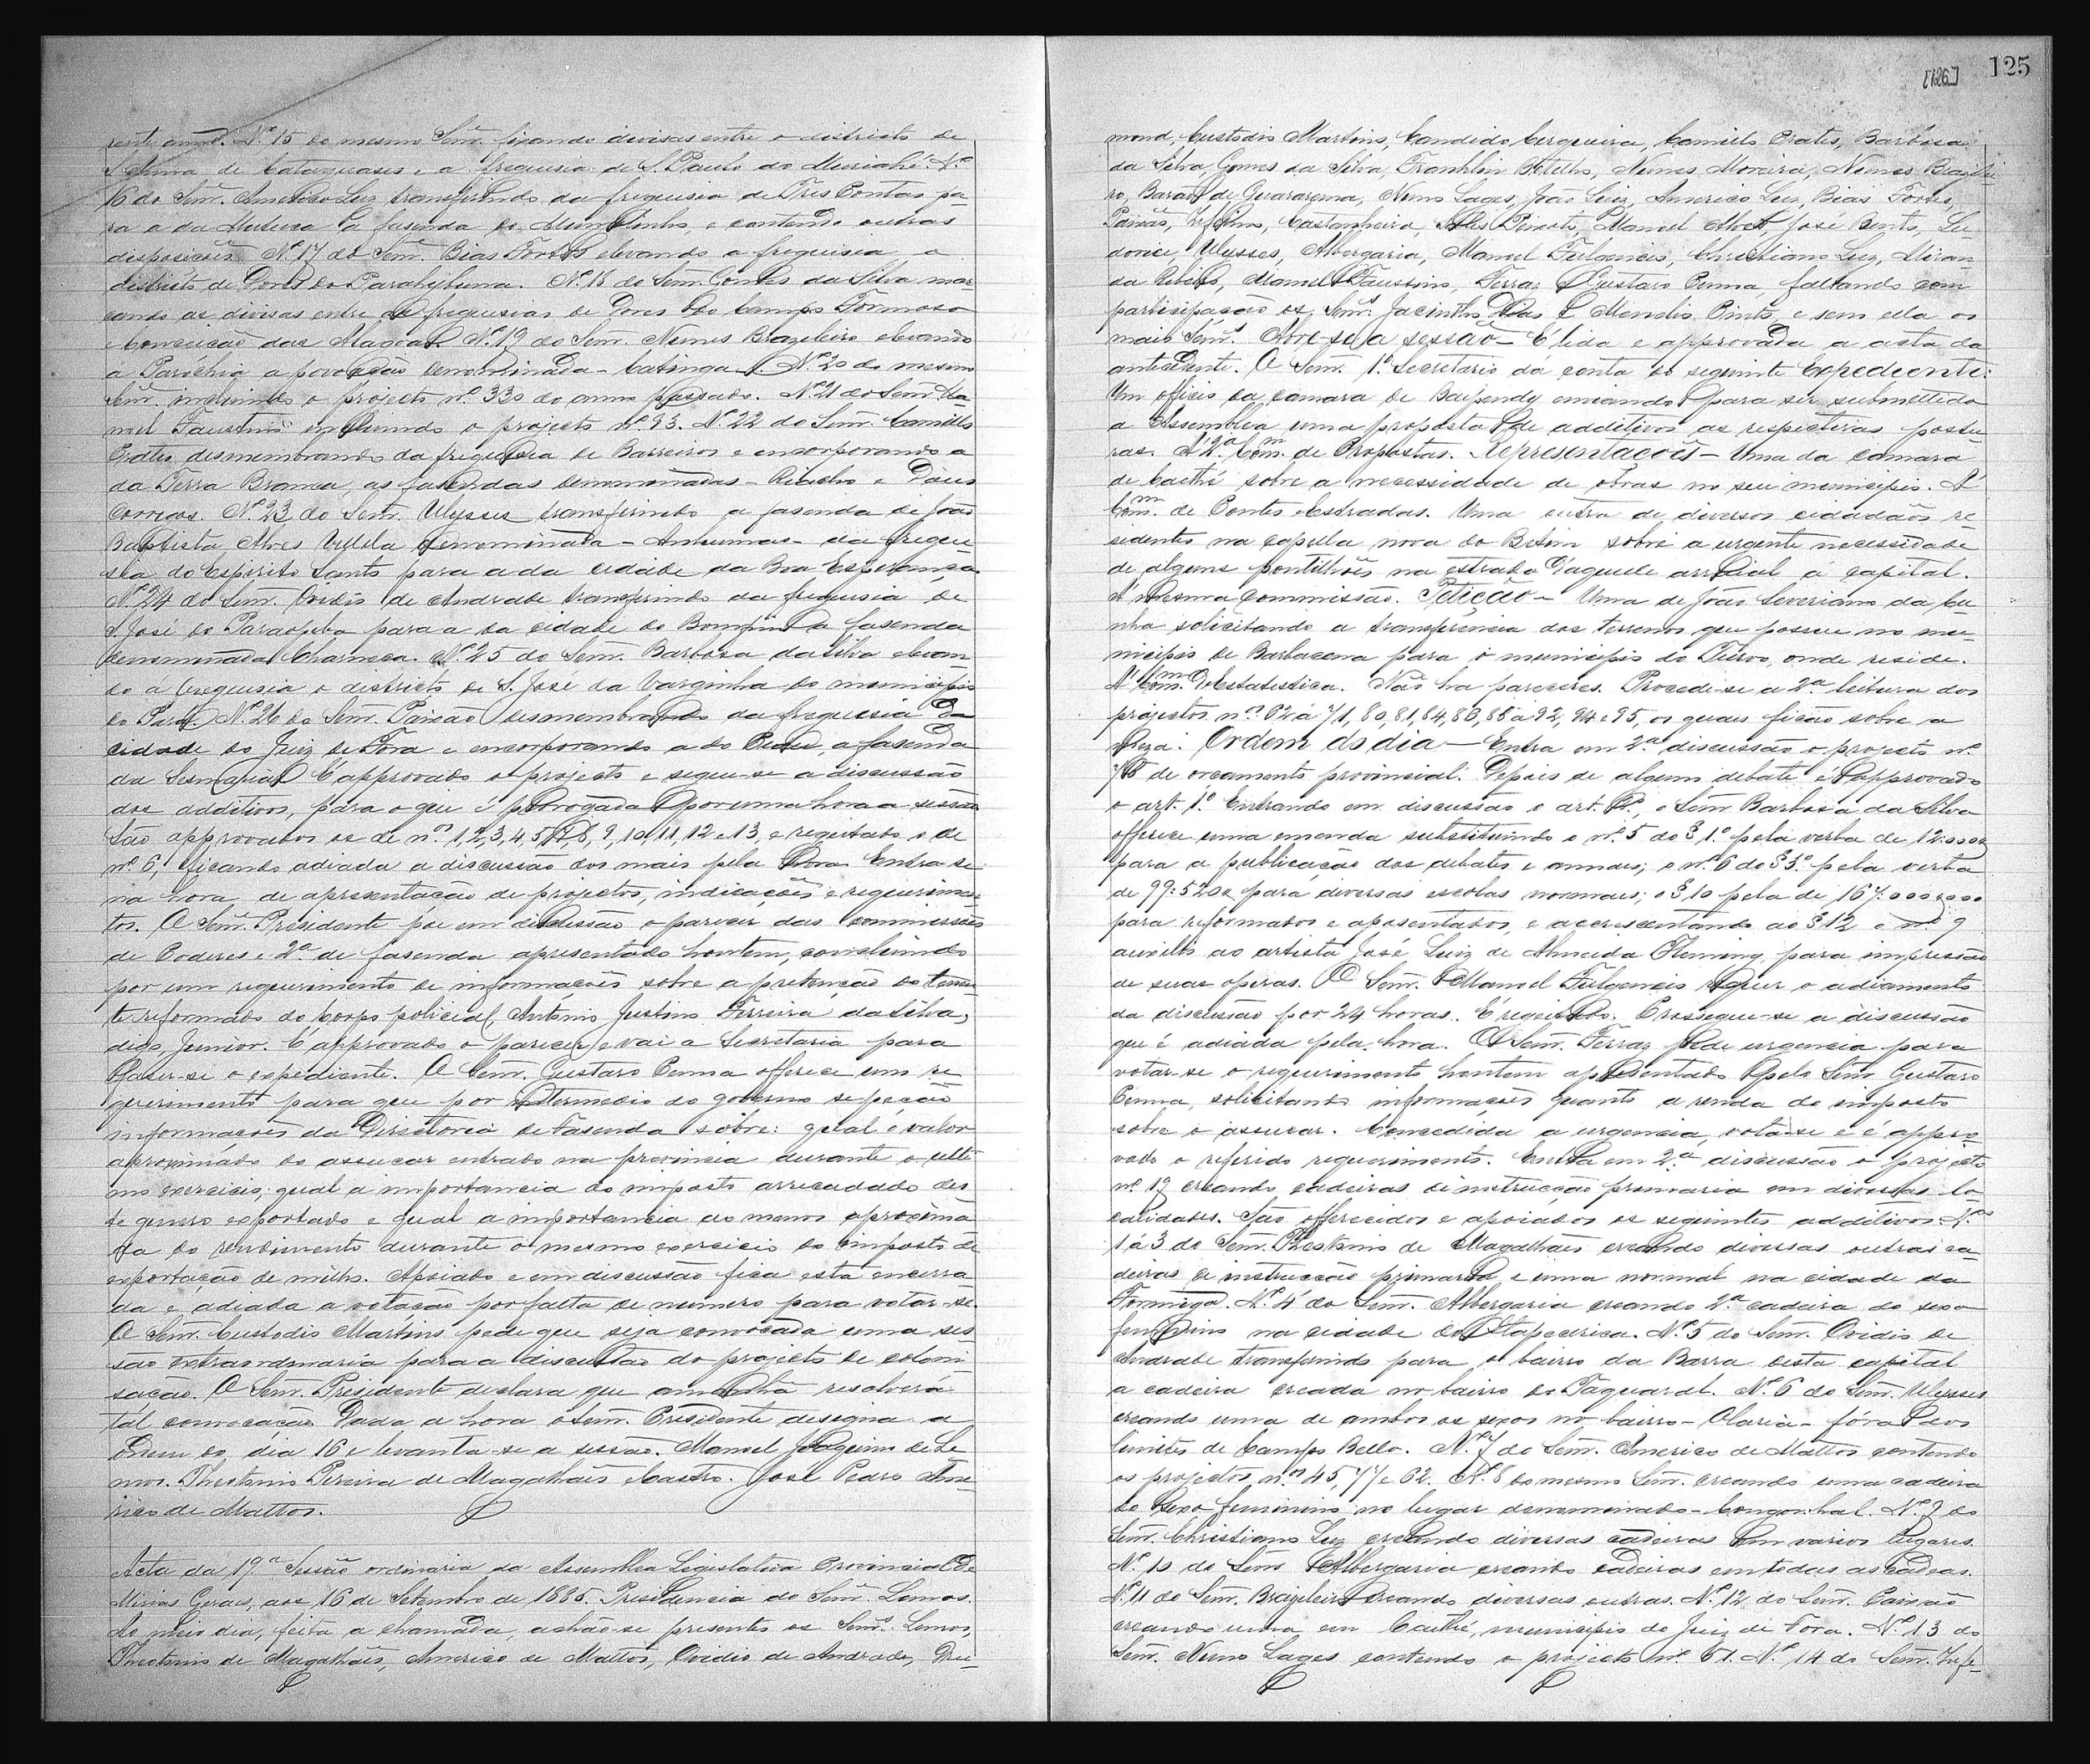 rente anno. Nº 15 do mesmo Senr. fixando divisas entre o districto de
Sant'Anna de Cataguases e a freguesia de S. Paulo do Muriahé. Nº
16 do Senr. Americo Luz transferindo da freguesia de Tres Pontas pa
ra a da Mutuca a fasenda do Mundinho, e contendo outras
disposições. Nº 17 do Senr. Bias Fortes elevando a freguesia o
districto de Dores do Parahybuna. Nº 18 do Senr. Gomes da Silva mar
cando as divisas entre as freguesias de Dores do Campo Formoso
e Conceição das Alagoas. Nº 19 do Senr. Nunes Brazileiro elevando
a Parochia a povoação denominada - Catinga. Nº 20 do mesmo
Senr. incluindo o projecto nº 330 do anno passado. Nº 21 do Senr. Ma
noel Faustino incluindo o projecto nº 93. Nº 22 do Senr. Camillo
Prates desmembrando da freguesia de Barreiros e encorporando a
da Terra Branca, as fasendas denominadas - Riacho e Dous
Corregos. Nº 23 do Senr. Ulysses transferindo a fasenda de João
Baptista Alves Villela denominada - Anhumas - da fregue
sia do Espirito Santo para a da cidade da Boa Esperança.
Nº 24 do Senr. Ovidio de Andrade transferindo da freguesia de
S. José do Paraopeba para a da cidade do Bomfim a fasenda
denominada Charneca. Nº 25 do Senr. Barbosa da Silva elevan
do á freguesia o districto de S. José da Varginha do municipio
do Pará. Nº 26 do Senr. Paixão desmembrando da freguesia da
cidade do Juiz de Fora e encorporando a do a fasenda
da Sesmaria. É approvado o projecto e segue-se a discussão
dos additivos, para o que é prorogada por uma hora a sessão.
São approvados os de nos 1, 2, 3, 4, 5, 7, 8, 9, 10, 11, 12 e 13, e regeitado o de
nº 6, ficando adiada a discussão dos mais pela hora. Entra-se
na hora de apresentação de projectos, indicações e requerimen
tos. O Senr. Presidente põe em discussão o parecer das commissões
de Poderes e 2ª de fasenda apresentado hontem, concluindo
por um requerimento de informações sobre a pretenção do tenen
te reformado do Corpo policial, Antonio Justino Ferreira da Silva,
digo, Junior. É approvado o parecer e vai a Secretaria para
faser-se o expediente. O Senr. Gustavo Penna offerece um re
querimento para que por intermedio do governo se peção
informações da Directoria de Fasenda sobre: qual o valor
aproximado do assucar entrado na provincia durante o ulti
mo exercicio; qual a importancia do imposto arrecadado des
te genero exportado e qual a importancia ao menos aproxima
da do rendimento durante o mesmo exercicio do imposto de
exportação de milho. Apoiado e em discussão fica esta encerra
da e adiada a votação por falta de numero para votar-se.
O Senr. Custodio Martins pede que seja convocada uma ses
são extraordinaria para a discussão do projecto de coloni
sação. O Senr. Presidente declara que amanhã resolverá
tal convocação. Dada a hora o Senr. Presidente designa a
ordem do dia 16 e levanta-se a sessão. Manoel Joaquim de Le
mos. Theotonio Pereira de Magalhães e Castro. José Pedro Ame-
rico de Mattos.
Acta da 19ª Sessão ordinaria da Assemblea Legislativa Provincial de
Minas Geraes, aos 16 de Setembro de 1885. Presidencia do Senr. Lemos.
Ao meio dia, feita a chamada, achão-se presentes os Senrs. Lemos,
Theotonio de Magalhães, Americo de Mattos, Ovidio de Andrade, Dru-
[126] 125
mond, Custodio Martins, Candido Cerqueira, Camillo Prates, Barbosa
da Silva, Gomes da Silva, Franklin Botelho, Nunes Moreira, Nunes Brazilei
ro, Barão de Guararema, Nemo Lages, João Luiz, Americo Luz, Bias Fortes,
Paixão, Castanheira, Peixoto, Manoel Alves, José Bento, Lu
dovice, Ulysses, Albergaria, Manoel Fulgencio, Christiano Luz, Miran
da Ribeiro, Manoel Faustino, Ferraz e Gustavo Penna, faltando com
participação os Senrs. Jacintho Dias e Mendes Pinto, e sem ella os
mais Senrs. Abre-se a sessão - É lida e approvada a acta da
antecedente. O Senr. 1º Secretario dá conta do seguinte Expediente:
Um officio da camara de Baependy enviando para ser submettida
a Assemblea uma proposta de additivos as respectivas postu
ras. A 2ª Comm. de Propostas. Representações - Uma da camara
de Caethé sobre a necessidade de obras no seu municipio. A
Comm. de Pontes e Estradas. Uma outra de diversos cidadãos re
sidentes na capella nova do Betim sobre a urgente necessidade
de alguns pontilhões na estrada daquelle arraial á capital.
A mesma Commissão. Petição - Uma de João Severiano da Cu
nha solicitando a transferencia dos terrenos que possue no mu
nicipio de Barbacena para o municipio do Turvo, onde reside.
A Comm. de Estatistica. Não ha pareceres. Procede-se a 2ª leitura dos
projectos nos 62 á 71, 80, 81, 84, 86, 88 a 92, 94 e 95, os quaes ficão sobre a
mesa. Ordem do dia - Entra em 2ª discussão o projecto nº
78 de orçamento provincial. Depois de algum debate é approvado
o art. 1º. Entrando em discussão o art. 2º, o Senr. Barbosa da Silva
offerece uma emenda substituindo o nº 5 do § 1º pela verba de 12:000$
para a publicação dos debates e annaes; o nº 6 do § 3º pela verba
de 99:520$ para diversas escolas normaes; o § 10 pela de 167:000$000
para reformados e aposentados, e accrescentando ao § 12 o nº 9
auxilio ao artista José Luiz de Almeida Fleming, para impressão
de suas operas. O Senr. Manoel Fulgencio requer o adiamento
da discussão por 24 horas. É regeitado. Prossegue-se a discussão
que é adiada pela hora. O Senr. Ferraz pede urgencia para
votar-se o requerimento hontem apresentado pelo Senr. Gustavo
Penna, solicitando informações quanto a renda do imposto
sobre o assucar. Concedida a urgencia, vota-se e é appro
vado o referido requerimento. Entra em 2ª discussão o projecto
nº 19 creando cadeiras de instrucção primaria em diversas lo
calidades. São offerecidos e apoiados os seguintes additivos: Nos
1 á 3 do Senr. Theotonio de Magalhães creando diversas outras ca
deiras de instrucção primaria, e uma normal na cidade da
Formiga. Nº 4 do Senr. Albergaria creando 2ª cadeira do sexo
feminino na cidade de Itapecerica. Nº 5 do Senr. Ovidio de
Andrade transferindo para o bairro da Barra desta capital
a cadeira creada no bairro do Taquaral. Nº 6 do Senr. Ulysses
creando uma de ambos os sexos no bairro - Olaria - fóra dos
limites de Campo Bello. Nº 7 do Senr. Americo de Mattos contendo
os projectos nos 45, 77 e 62. Nº 8 do mesmo Senr. creando uma cadeira
do sexo feminino no lugar denominado - Congonhal. Nº 9 do
Senr. Christiano Luz creando diversas cadeiras em varios lugares.
Nº 10 do Senr. Albergaria creando cadeiras em todas as cadeas.
Nº 11 do Senr. Brazileiro creando diversas outras. Nº 12 do Senr. Paixão
creando uma em Caethé, municipio do Juiz de Fora. Nº 13 do
Senr. Nemo Lages contendo o projecto nº 61. Nº 14 do Senr. Zefe-